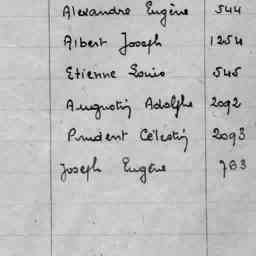 Alexandre Eugène 544
Albert Joseph 1254
Etienne Louis 545
Augustin Adolphe 2092
Prudent Célestin 2093
Joseph Eugène 763